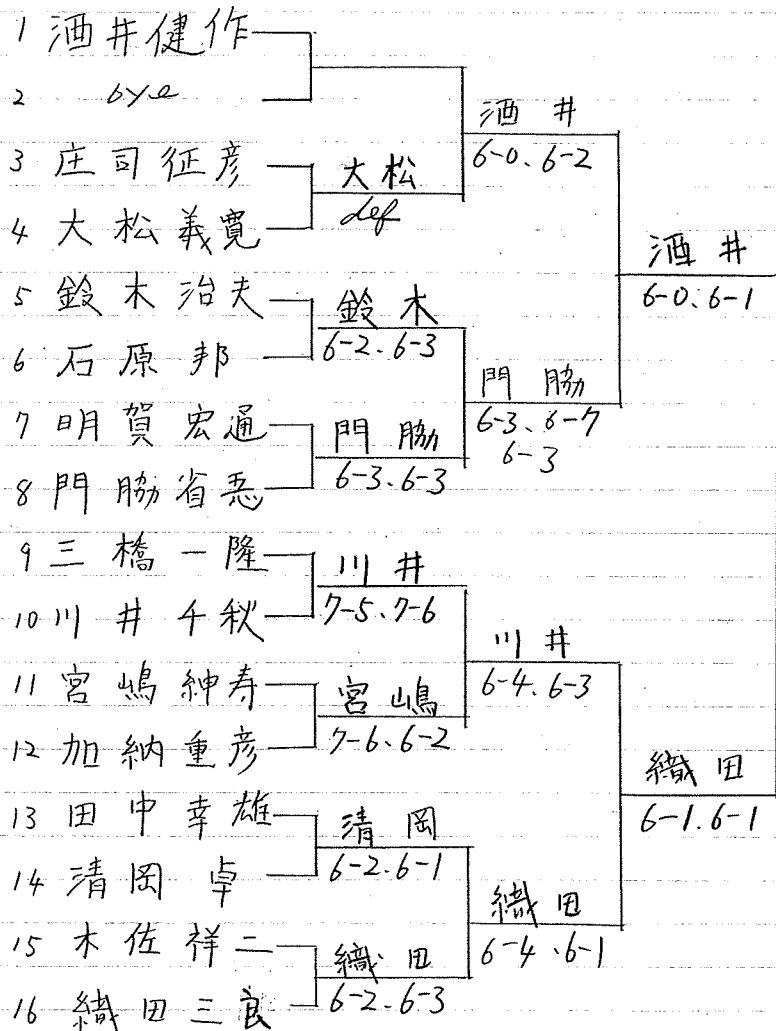 1 酒井健作
2 bye
3 庄司征彦
4 大松義寛
5 鈴木治夫
6 石原邦
7 明賀宏通
8 門脇省吾
9 三橋一隆
10 川井千秋
11 宮嶋紳寿
12 加納重彦
13 田中幸雄
14 清岡卓
15 木佐祥二
16 織田三良
大松
def
鈴木
6-2、6-3
門脇
6-3、6-3
川井
7-5、7-6
宮嶋
7-6、6-2
清岡
6-2、6-1
織田
6-2、6-3
酒井
6-0、6-2
門脇
6-3、6-7
6-3
川井
6-4、6-3
織田
6-4、6-1
酒井
6-0、6-1
織田
6-1、6-1